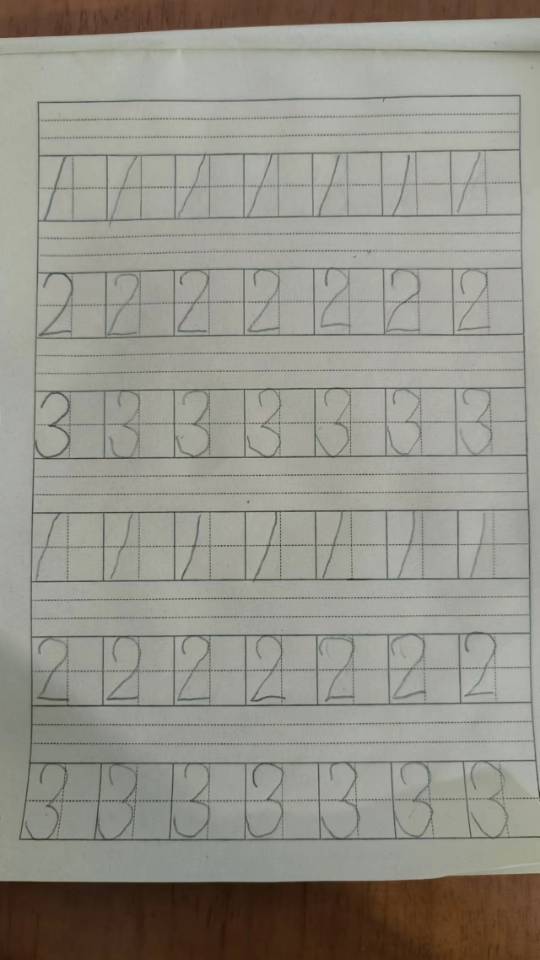 1 1 1 1 1 1 1
2 2 2 2 2 2 2
3 3 3 3 3 3 3
1 1 1 1 1 1 1
2 2 2 2 2 2 2
3 3 3 3 3 3 3